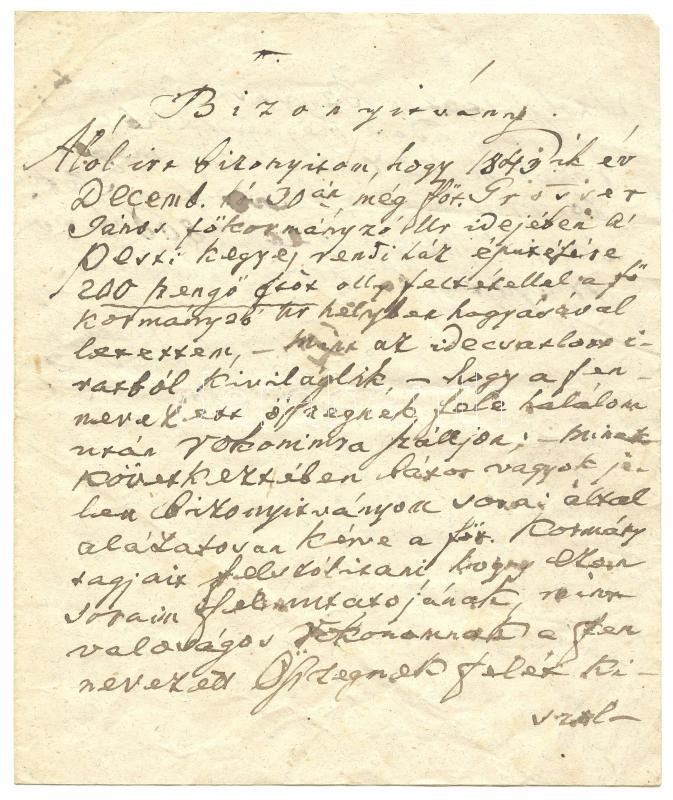 Bizonyitvány.
Alól irt bizonyitom, hogy 1843ik év
Decemb. hó 30án még főt. Grosser
János főkormányzó Ur idejében a
Pesti kegyes rendi ház épitésére
200 pengő ftot olly feltétellel a fő
kormányzó Ur helyben hagyásával
letettem, – mint az idecsatlott i-
ratból kiviláglik – hogy a fen-
nevezett öszegnek fele halálom
után rokonimra szálljon; – minek
következtében bátor vagyok je-
len bizonyitványom sorai által
alázatosan kérve a főt. Kormány
tagjait felszólitani hogy ezen
soraim felmutatojának, mint
valoságos rokonomnak a fen
nevezett Öszegnek felét ki-
szol-